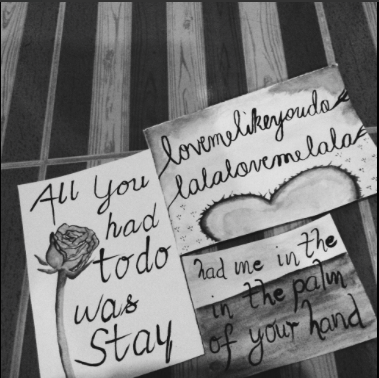 All You
had
to do
was
Stay
lovemelikeyoudo
lalalovemelala
had me in the
in the palm
of your hand